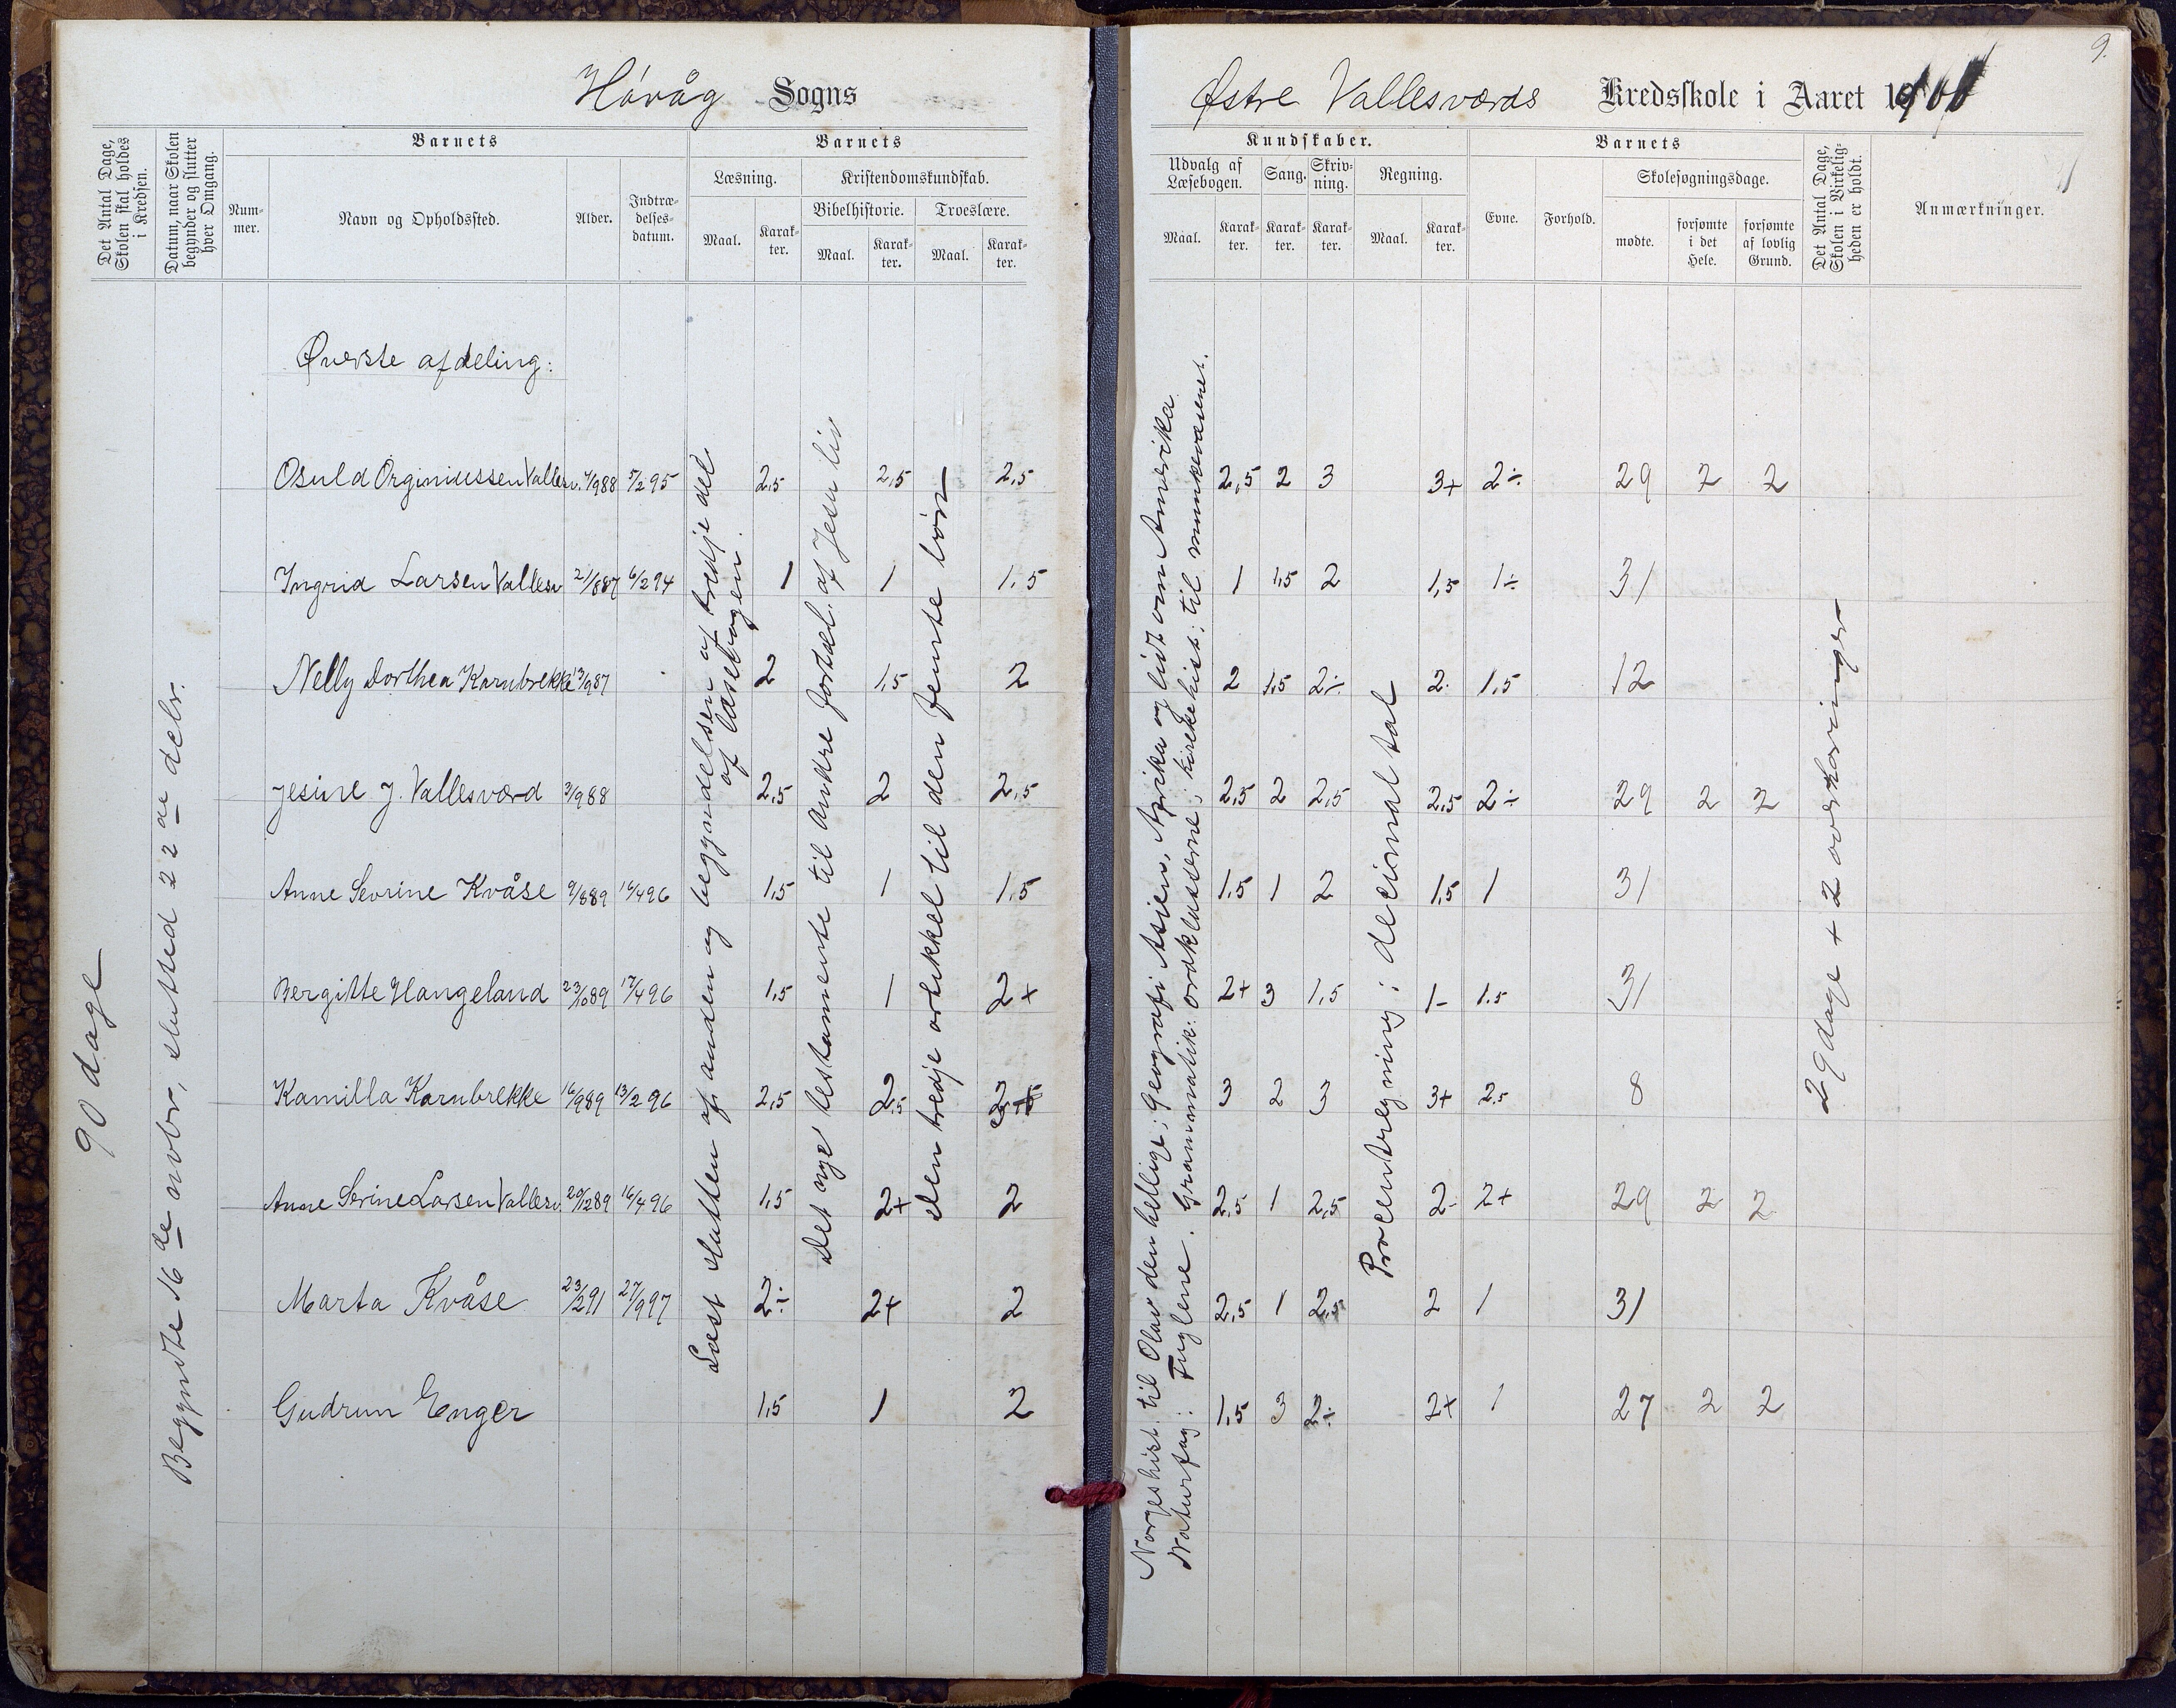 9.
Høvåg Sogns
Østre Vallesværds Kredsskole i Aaret 1900
Det Antal Dage, Skolen skal holdes i Kredsen.
Datum, naar Skolen begynder og slutter hver Omgang.
Barnets
Nummer.
Navn og Opholdssted.
Alder.
Indtrædelsesdatum.
Barnets
Læsning.
Maal.
Karakter.
Kristendomskundskab.
Bibelhistorie.
Maal.
Karakter.
Troeslære.
Maal.
Karakter.
Kundskaber.
Udvalg af Læsebogen.
Maal.
Karakter.
Sang.
Karakter.
Skrivning.
Karakter.
Regning.
Maal.
Karakter.
Barnets
Evne.
Forhold.
Skolesøgningsdage.
mødte.
forsømte i det Hele.
forsømte af lovlig Grund.
Det Antal Dage, Skolen i Virkeligheden er holdt.
Anmærkninger.
90 dage
Begyndte 16 de novbr, slutted 22 de debr.
Øverste afdeling:
Læst slutten af anden og begyndelsen af tredje del
af læsebogen.
Det nye testamente til andre fortæl. af Jesu liv
Den tredje artikkel til den femte bøn
Norgeshist. til Olav den hellige; Geografi: Asien, Afrika og lidt om Amerika
Naturfag: Fuglene. Grammatik: ordklasserne; kirkehist; til munkevæsenet.
Procentregning; decimaltal
29 dage + 2 overhøringer
Osuld Orginiussen Vallesv. 4/988 5/295 2,5 2,5 2,5 2,5 2 3 3+ 2÷ 29 2 2
Ingrid Larsen Vallesv 21/887 6/294 1 1 1,5 1 1,5 2 1,5 1÷ 31
Nelly Dorthea Karnbrekke 13/987 2 1,5 2 2 1,5 2÷ 2 1,5 12
Jesine J. Vallesværd 3/988 2,5 2 2,5 2,5 2 2,5 2,5 2÷ 29 2 2
Anne Sevrine Kvåse 9/889 16/496 1,5 1 1,5 1,5 1 2 1,5 1 31
Bergitte Hangeland 23/1089 17/496 1,5 1 2+ 2+ 3 1,5 1- 1.5 31
Kamilla Karnbrekke 16/989 13/296 2,5 2,5 3 2 3 3+ 2.5 8
Anne Serine Larsen Vallesv. 20/1289 16/496 1,5 2+ 2 2,5 1 2,5 2- 2+ 29 2 2
Marta Kvåse 23/291 27/997 2÷ 2+ 2 2,5 1 2,5 2 1 31
Gudrun Enger 1,5 1 2 1,5 3 2÷ 2+ 1 27 2 2